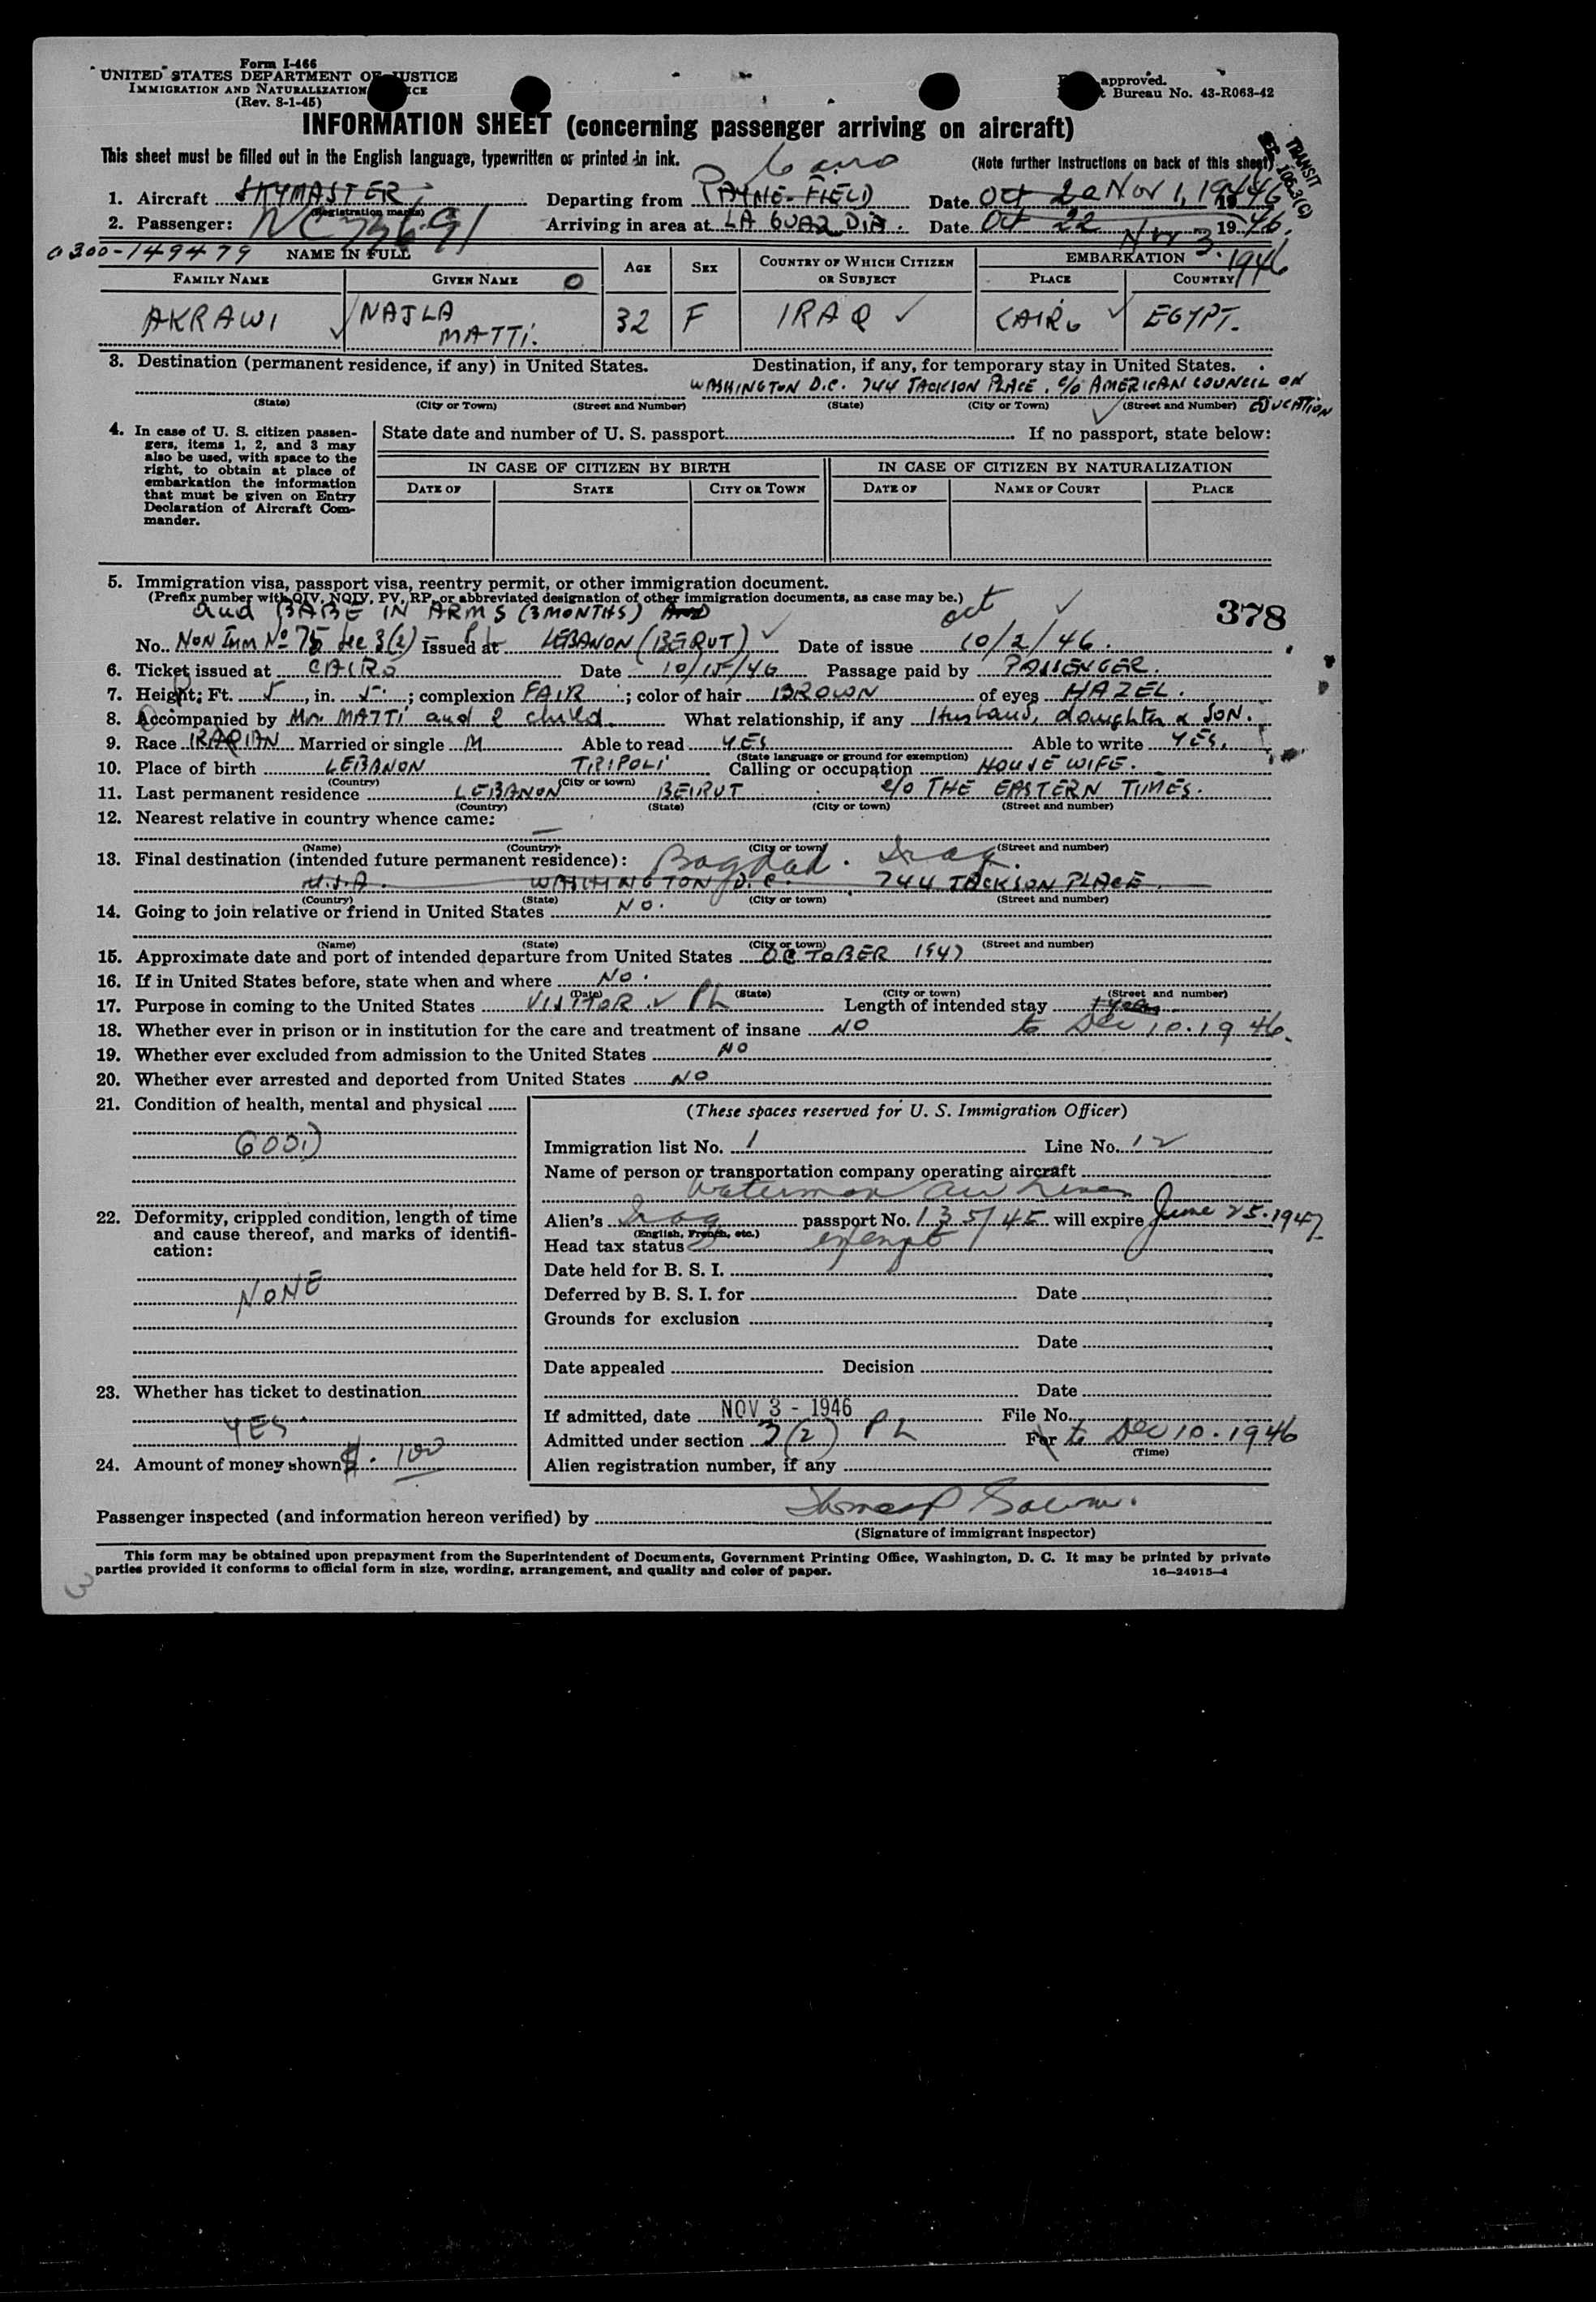 Form I-466
UNITED STATES DEPARTMENT OF JUSTICE
IMMIGRATION AND NATURALIZATION
(Rev. 8-1-45)
approved.
Bureau No. 43-R063-42
INFORMATION SHEET (concerning passenger arriving on aircraft)
This sheet must be filled out in the English language, typewritten or printed in ink.
(Note further instructions on back of this sheet)
TRANSIT
Cairo
1. Aircraft SKYMASTER Departing from PAYNE FIELD Date Oct 20 Nov 1, 1946
(Registration marks)
2. Passenger: Arriving in area at LA GUARDIA. Date Oct 22 1946.
Nov 3. 1946
0300-149479 NAME IN FULL
AGE SEX COUNTRY OF WHICH CITIZEN OR SUBJECT EMBARKATION
FAMILY NAME GIVEN NAME PLACE COUNTRY
AKRAWI NAJLA MATTI. 32 F IRAQ CAIRO EGYPT.
3. Destination (permanent residence, if any) in United States. Destination, if any, for temporary stay in United States.
WASHINGTON D.C. 744 JACKSON PLACE. c/o AMERICAN COUNCIL ON EDUCATION
(State) (City or Town) (Street and Number) (State) (City or Town) (Street and Number)
4. In case of U. S. citizen passengers, items 1, 2, and 3 may also be used, with space to the right, to obtain at place of embarkation the information that must be given on Entry Declaration of Aircraft Commander.
State date and number of U. S. passport If no passport, state below:
IN CASE OF CITIZEN BY BIRTH IN CASE OF CITIZEN BY NATURALIZATION
DATE OF STATE CITY OR TOWN DATE OF NAME OF COURT PLACE
5. Immigration visa, passport visa, reentry permit, or other immigration document.
(Prefix number with QIV, NQIV, PV, RP, or abbreviated designation of other immigration documents, as case may be.)
and BABE IN ARMS (3 MONTHS) AND
oct
378
No. NON Imm No 75 Sec 3(2) Issued at LEBANON (BEIRUT) Date of issue 10/2/46.
6. Ticket issued at CAIRO Date 10/15/46 Passage paid by PASSENGER.
7. Height: Ft. 5, in. 5.; complexion FAIR; color of hair BROWN of eyes HAZEL.
8. Accompanied by Mr. MATTI and 2 child. What relationship, if any Husband, daughter & SON.
9. Race IRAQIAN Married or single M Able to read YES Able to write YES.
(State language or ground for exemption)
10. Place of birth LEBANON TRIPOLI Calling or occupation HOUSE WIFE.
(Country) (City or town)
11. Last permanent residence LEBANON BEIRUT c/o THE EASTERN TIMES.
(Country) (State) (City or town) (Street and number)
12. Nearest relative in country whence came: —
(Name) (Country) (City or town) (Street and number)
13. Final destination (intended future permanent residence): Bagdad. Iraq.
U.S.A. WASHINGTON D.C. 744 JACKSON PLACE.
(Country) (State) (City or town) (Street and number)
14. Going to join relative or friend in United States NO.
(Name) (State) (City or town) (Street and number)
15. Approximate date and port of intended departure from United States OCTOBER 1947
16. If in United States before, state when and where NO.
(Date) (State) (City or town) (Street and number)
17. Purpose in coming to the United States VISITOR PL Length of intended stay 1 year
18. Whether ever in prison or in institution for the care and treatment of insane NO to Dec 10. 1946.
19. Whether ever excluded from admission to the United States NO
20. Whether ever arrested and deported from United States NO
21. Condition of health, mental and physical
GOOD
22. Deformity, crippled condition, length of time and cause thereof, and marks of identification:
NONE
23. Whether has ticket to destination
YES.
24. Amount of money shown $. 100
(These spaces reserved for U. S. Immigration Officer)
Immigration list No. 1 Line No. 12
Name of person or transportation company operating aircraft
Waterman Air Lines
Alien's Iraq passport No. 135/45 will expire June 25. 1947
(English, French, etc.)
Head tax status exempt
Date held for B. S. I.
Deferred by B. S. I. for Date
Grounds for exclusion
Date
Date appealed Decision
Date
If admitted, date NOV 3 - 1946 File No.
Admitted under section 3(2) PL For to Dec 10. 1946
(Time)
Alien registration number, if any
Passenger inspected (and information hereon verified) by
(Signature of immigrant inspector)
This form may be obtained upon prepayment from the Superintendent of Documents, Government Printing Office, Washington, D. C. It may be printed by private
parties provided it conforms to official form in size, wording, arrangement, and quality and color of paper.
16—24915-4
3